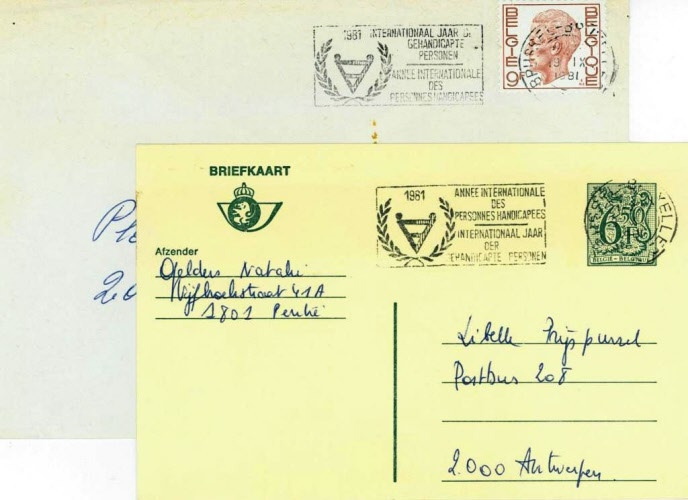 1981 INTERNATIONAAL JAAR DER
GEHANDICAPTE
PERSONEN
ANNEE INTERNATIONALE
DES
PERSONNES HANDICAPEES
BELGIE 9F BELGIQUE
BRUXELLES BRUSSEL
IX
1981
BRIEFKAART
1981
ANNEE INTERNATIONALE
DES
PERSONNES HANDICAPEES
INTERNATIONAAL JAAR
DER
GEHANDICAPTE PERSONEN
6,50F
BELGIE - BELGIQUE
Afzender
Gelders Natalie
41A
1801
Libelle Prijspuzzel
Postbus 208
2.000 Antwerpen